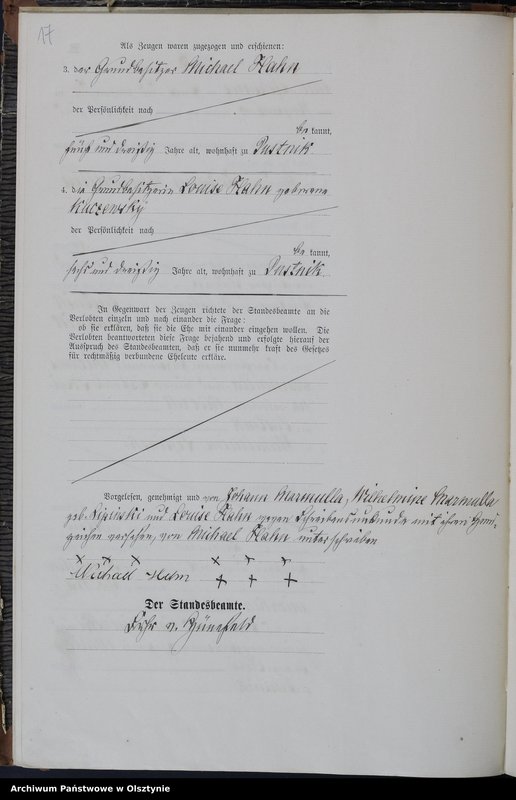 17
Als Zeugen waren zugezogen und erschienen:
3. der Grundbesitzer Michael Hahn
der Persönlichkeit nach
be kannt,
fünf und dreißig Jahre alt, wohnhaft zu Pustnik
4. die Grundbesitzerin Louise Hahn geborene
Kuczewsky
der Persönlichkeit nach
be kannt,
sechs und dreißig Jahre alt, wohnhaft zu Pustnik.
In Gegenwart der Zeugen richtete der Standesbeamte an die
Verlobten einzeln und nach einander die Frage:
ob sie erklären, daß sie die Ehe mit einander eingehen wollen. Die
Verlobten beantworteten diese Frage bejahend und erfolgte hierauf der
Ausspruch des Standesbeamten, daß er sie nunmehr kraft des Gesetzes
für rechtmäßig verbundene Eheleute erkläre.
Vorgelesen, genehmigt und von Johann Marmulla, Wilhelmine Marmulla
geb. und Louise Hahn wegen Schreibensunkunde mit ihren Hand-
zeichen versehen, von Michael Hahn unterschrieben
+ + + + + +
Michael Hahn + + +
Der Standesbeamte.
v.
Archiwum Państwowe w Olsztynie